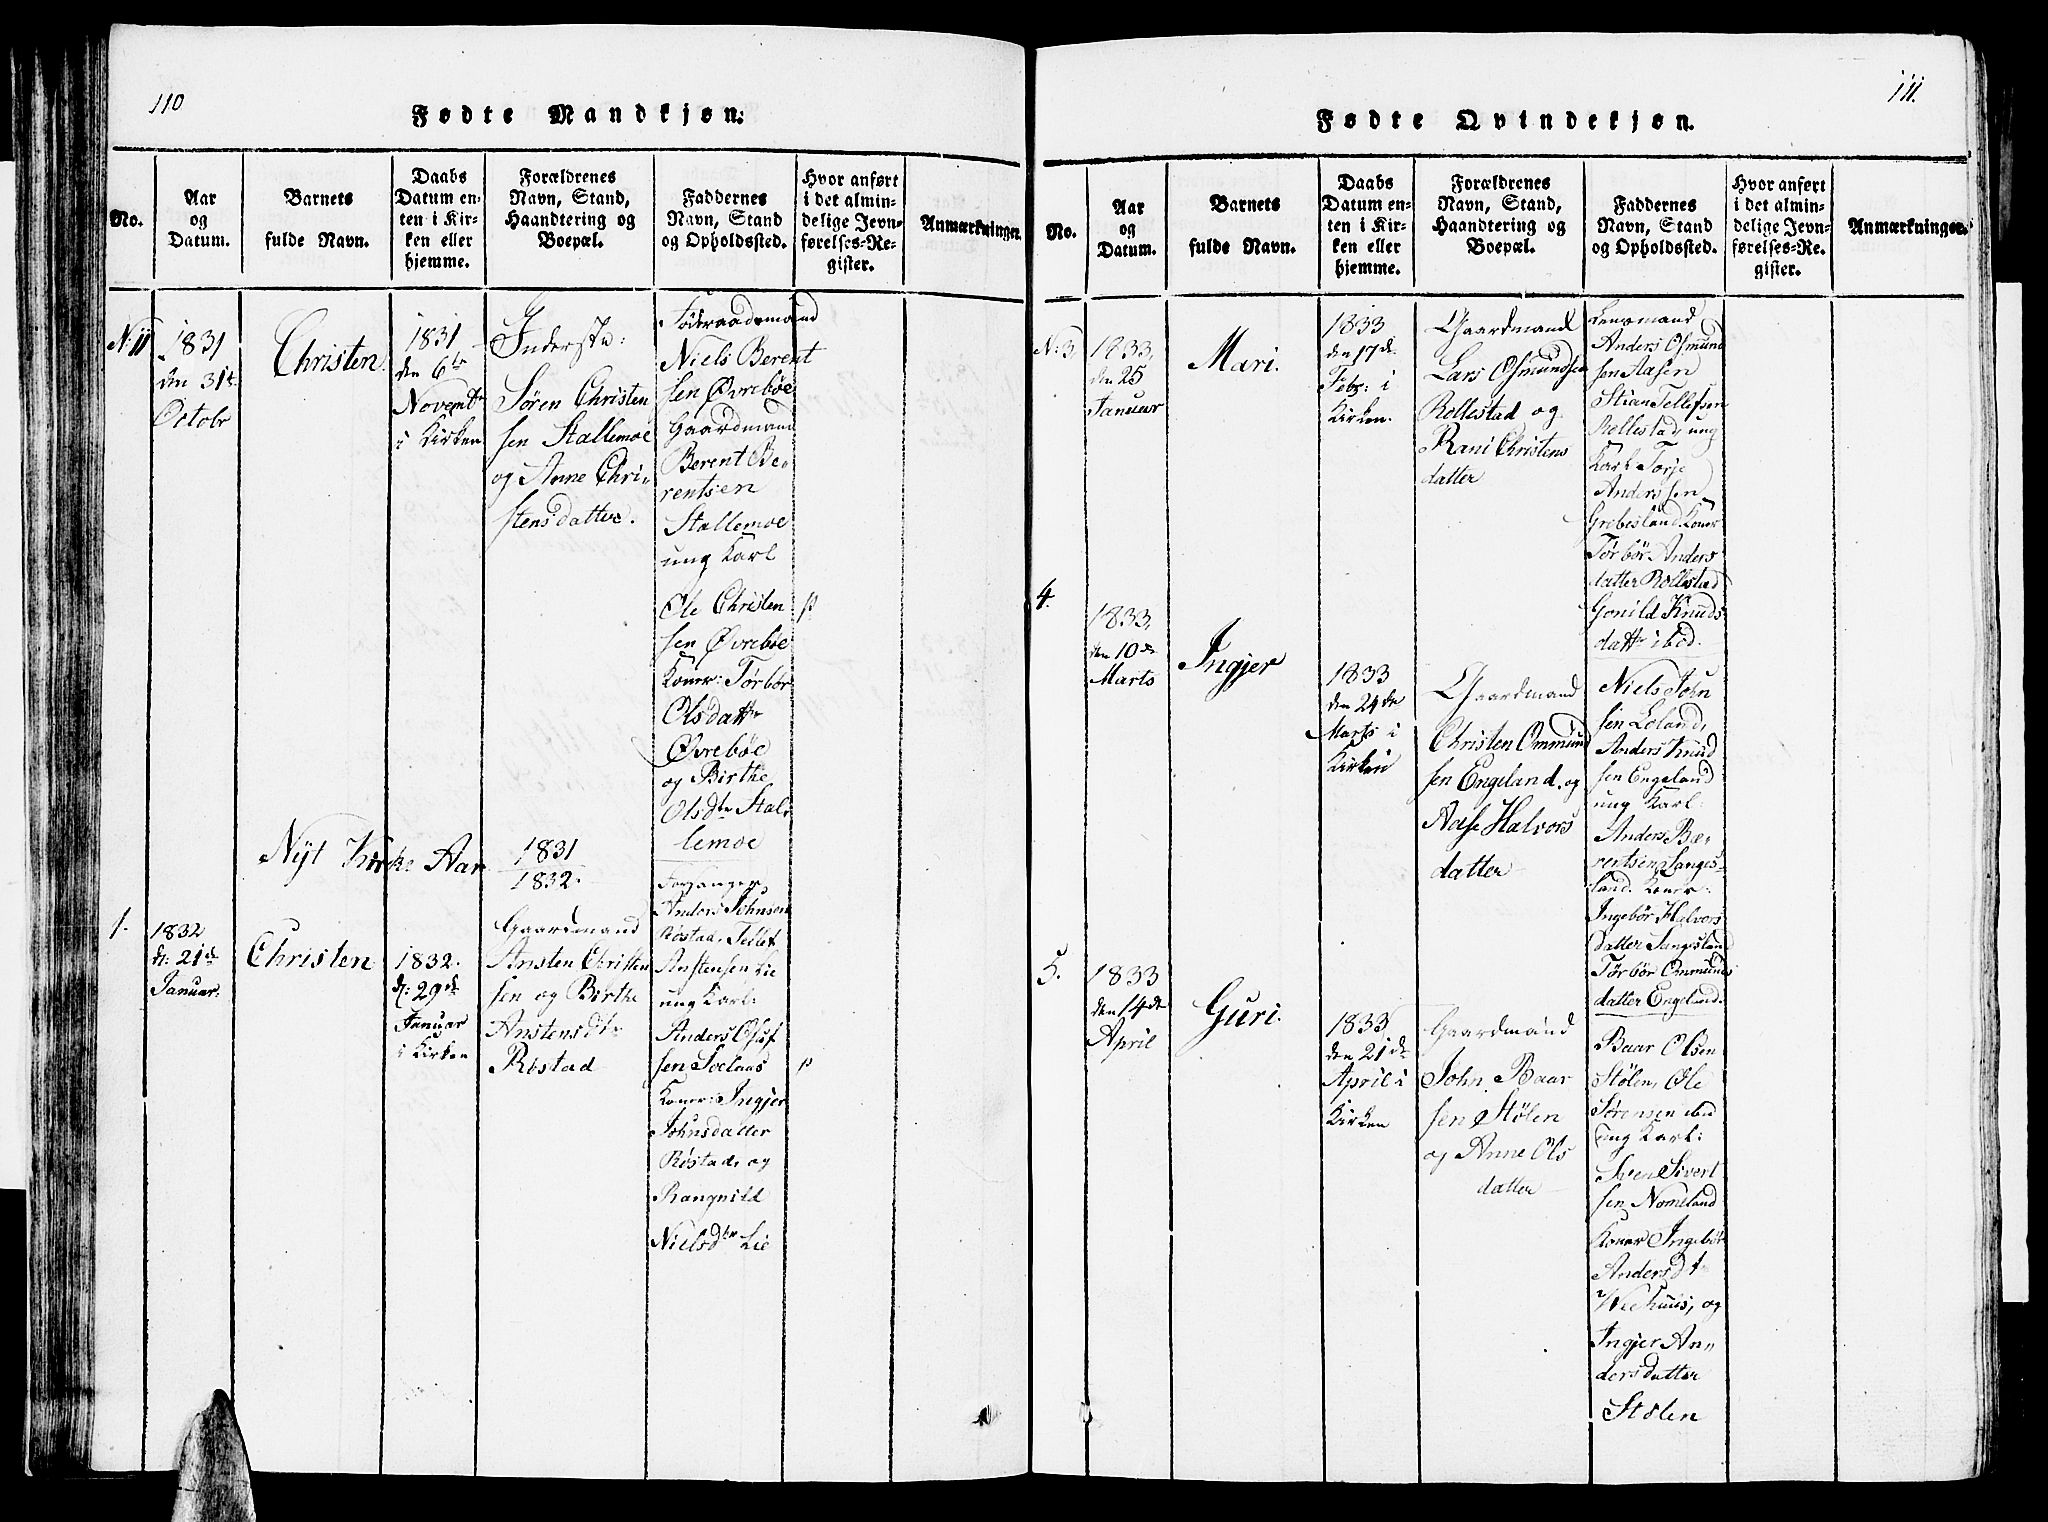 110
Fødte Mandkjøn.
No.
Aar
og
Datum.
Barnets
fulde Navn.
Daabs
Datum en-
ten i Kir-
ken eller
hjemme.
Forældrenes
Navn, Stand,
Haandtering og
Boepæl.
Faddernes
Navn, Stand
og Opholdssted.
Hvor anført
i det almin-
delige Jevn-
førelses-Re-
gister.
Anmærkninger.
N: 11
1831
den 31t
Octobr
Christen
1831
den 6te
Novembr
i Kirken
Inderste:
Søren Christen
sen Stallemoe
og Anne Chri-
stensdatter.
Föderaadsmand
Niels Berent
sen Øvrebøe
Gaardmand
Berent Be-
rentsen
Stallemoe
ung Karl
Ole Christen
sen Øvrebøe
Koner: Torbør
Olsdattr
Øvrebøe
og Birthe
Olsdtr Stal-
lemoe
p
Nyt Kirke Aar
1831
1832.
1.
1832
d: 21de
Januar:
Christen
1832.
d: 29de
Januar
i Kirken
Gaardmand
Ansten Christen
sen og Birthe
Anstensdtr
Røstad
Forsanger
Anders Johnsen
Røstad, Tellef
Anstensen Lie
ung Karl:
Anders Osuf
sen
Koner: Ingjer
Johnsdatter
Røstad, og
Rangnild
Nielsdtr Lie
p
111.
Fødte Qvindekjøn.
No.
Aar
og
Datum.
Barnets
fulde Navn.
Daabs
Datum en-
ten i Kir-
ken eller
hjemme.
Forældrenes
Navn, Stand,
Haandtering og
Boepæl.
Faddernes
Navn, Stand
og Opholdssted.
Hvor anført
i det almin-
delige Jevn-
førelses-Re-
gister.
Anmærkninger.
N: 3
1833,
den 25
Januar
Mari.
1833
den 17de
Febr: i
Kirken.
Gaardmand
Lars Osmundsen
Rollestad og
Rani Christens
datter
Lensmand
Anders Osmund
sen Aasen
Stian Tellefsen
ung
Karl Torje
Anderssen
Grebesland. Koner
Torbør Anders
datter Rollestad
Gonild Knuds
dattr ibid.
4.
1833,
den 10de
Marts
Ingjer
1833
den 24de
Marts i
Kirken
Gaardmand
Christen Ommund
sen Engeland. og
Aase Halvors
datter
Niels John
sen Loland,
Anders Knud
sen Engeland
ung Karl:
Anders Bæ-
rentsen Langes-
land. Koner:
Ingebør Halvors
datter Langesland
Torbør Ommunds
datter Engeland.
5.
1833
den 14de
April
Guri.
1833
den 21de
April i
Kirken
Gaardmand
John Baar
sen Stølen
og Anne Ols
datter
Baar Olsen
Stølen, Ole
Sörensen ibid
ung Karl:
Sven Sivert
sen Nomeland
Koner Ingebør
Andersdtr
og
Ingjer An-
dersdatter
Stølen